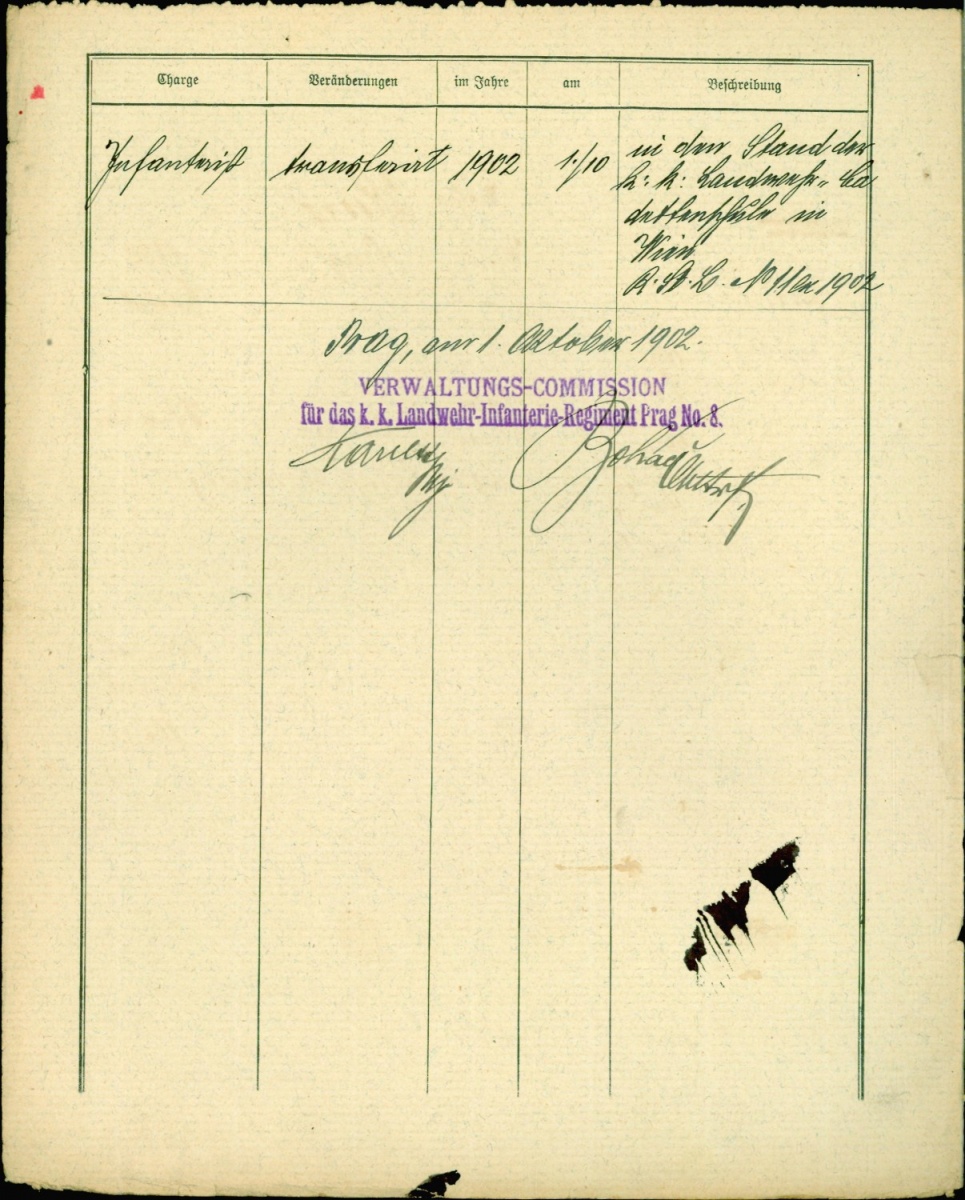 Charge Veränderungen im Jahre am Beschreibung
Infanterist transferirt 1902 1./10 in den Stand der
k: k: Landwehr-Ca
dettenschule in
Wien
No 11 ex 1902
Prag, am 1. Oktober 1902.
VERWALTUNGS-COMMISSION
für das k. k. Landwehr-Infanterie-Regiment Prag No. 8.